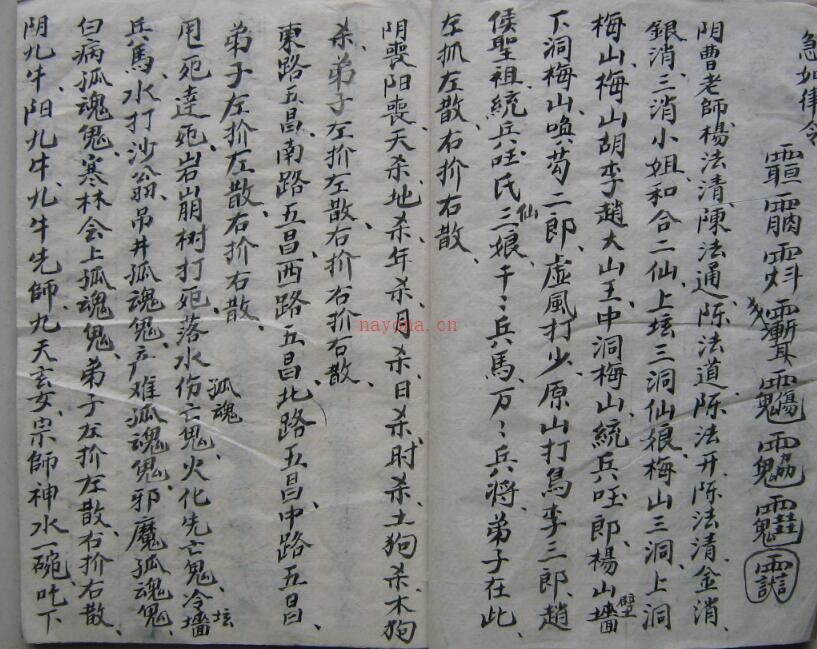 急如律令
阴曹老師楊法清、陳法通、陈法道、陈法开、陈法清、金消、
銀消、三消小姐、和合二仙、上坛三洞仙娘、梅山三洞、上洞
梅山、梅山胡李趙大山王、中洞梅山、統兵吽郎、楊山壁墻、
下洞梅山、喚茍二郎、虛風打少、原山打鳥李三郎、趙
侯聖祖、統兵吽氏三仙娘、千〻兵馬、万〻兵將、弟子在此、
左扒左散、右扴右散、
阴喪阳喪、天杀地杀、年杀月杀日杀时杀、土狗杀、木狗
杀、弟子左扴左散、右扴右散、
東路五昌、南路五昌、西路五昌、北路五昌、中路五昌、
弟子左扴左散、右扴右散、
甩死達死、岩崩树打死、落水伤亡鬼、火化先亡鬼、冷坛墻
孤魂
兵馬、水打沙翁、吊井孤魂鬼、产难孤魂鬼、邪魔孤魂鬼、
白病孤魂鬼、寒林会上孤魂鬼、弟子左扴左散、右扴右散、
阴九牛、阳九牛、九牛先師、九天玄女、宗師神水一碗、吒下
nayona.cn